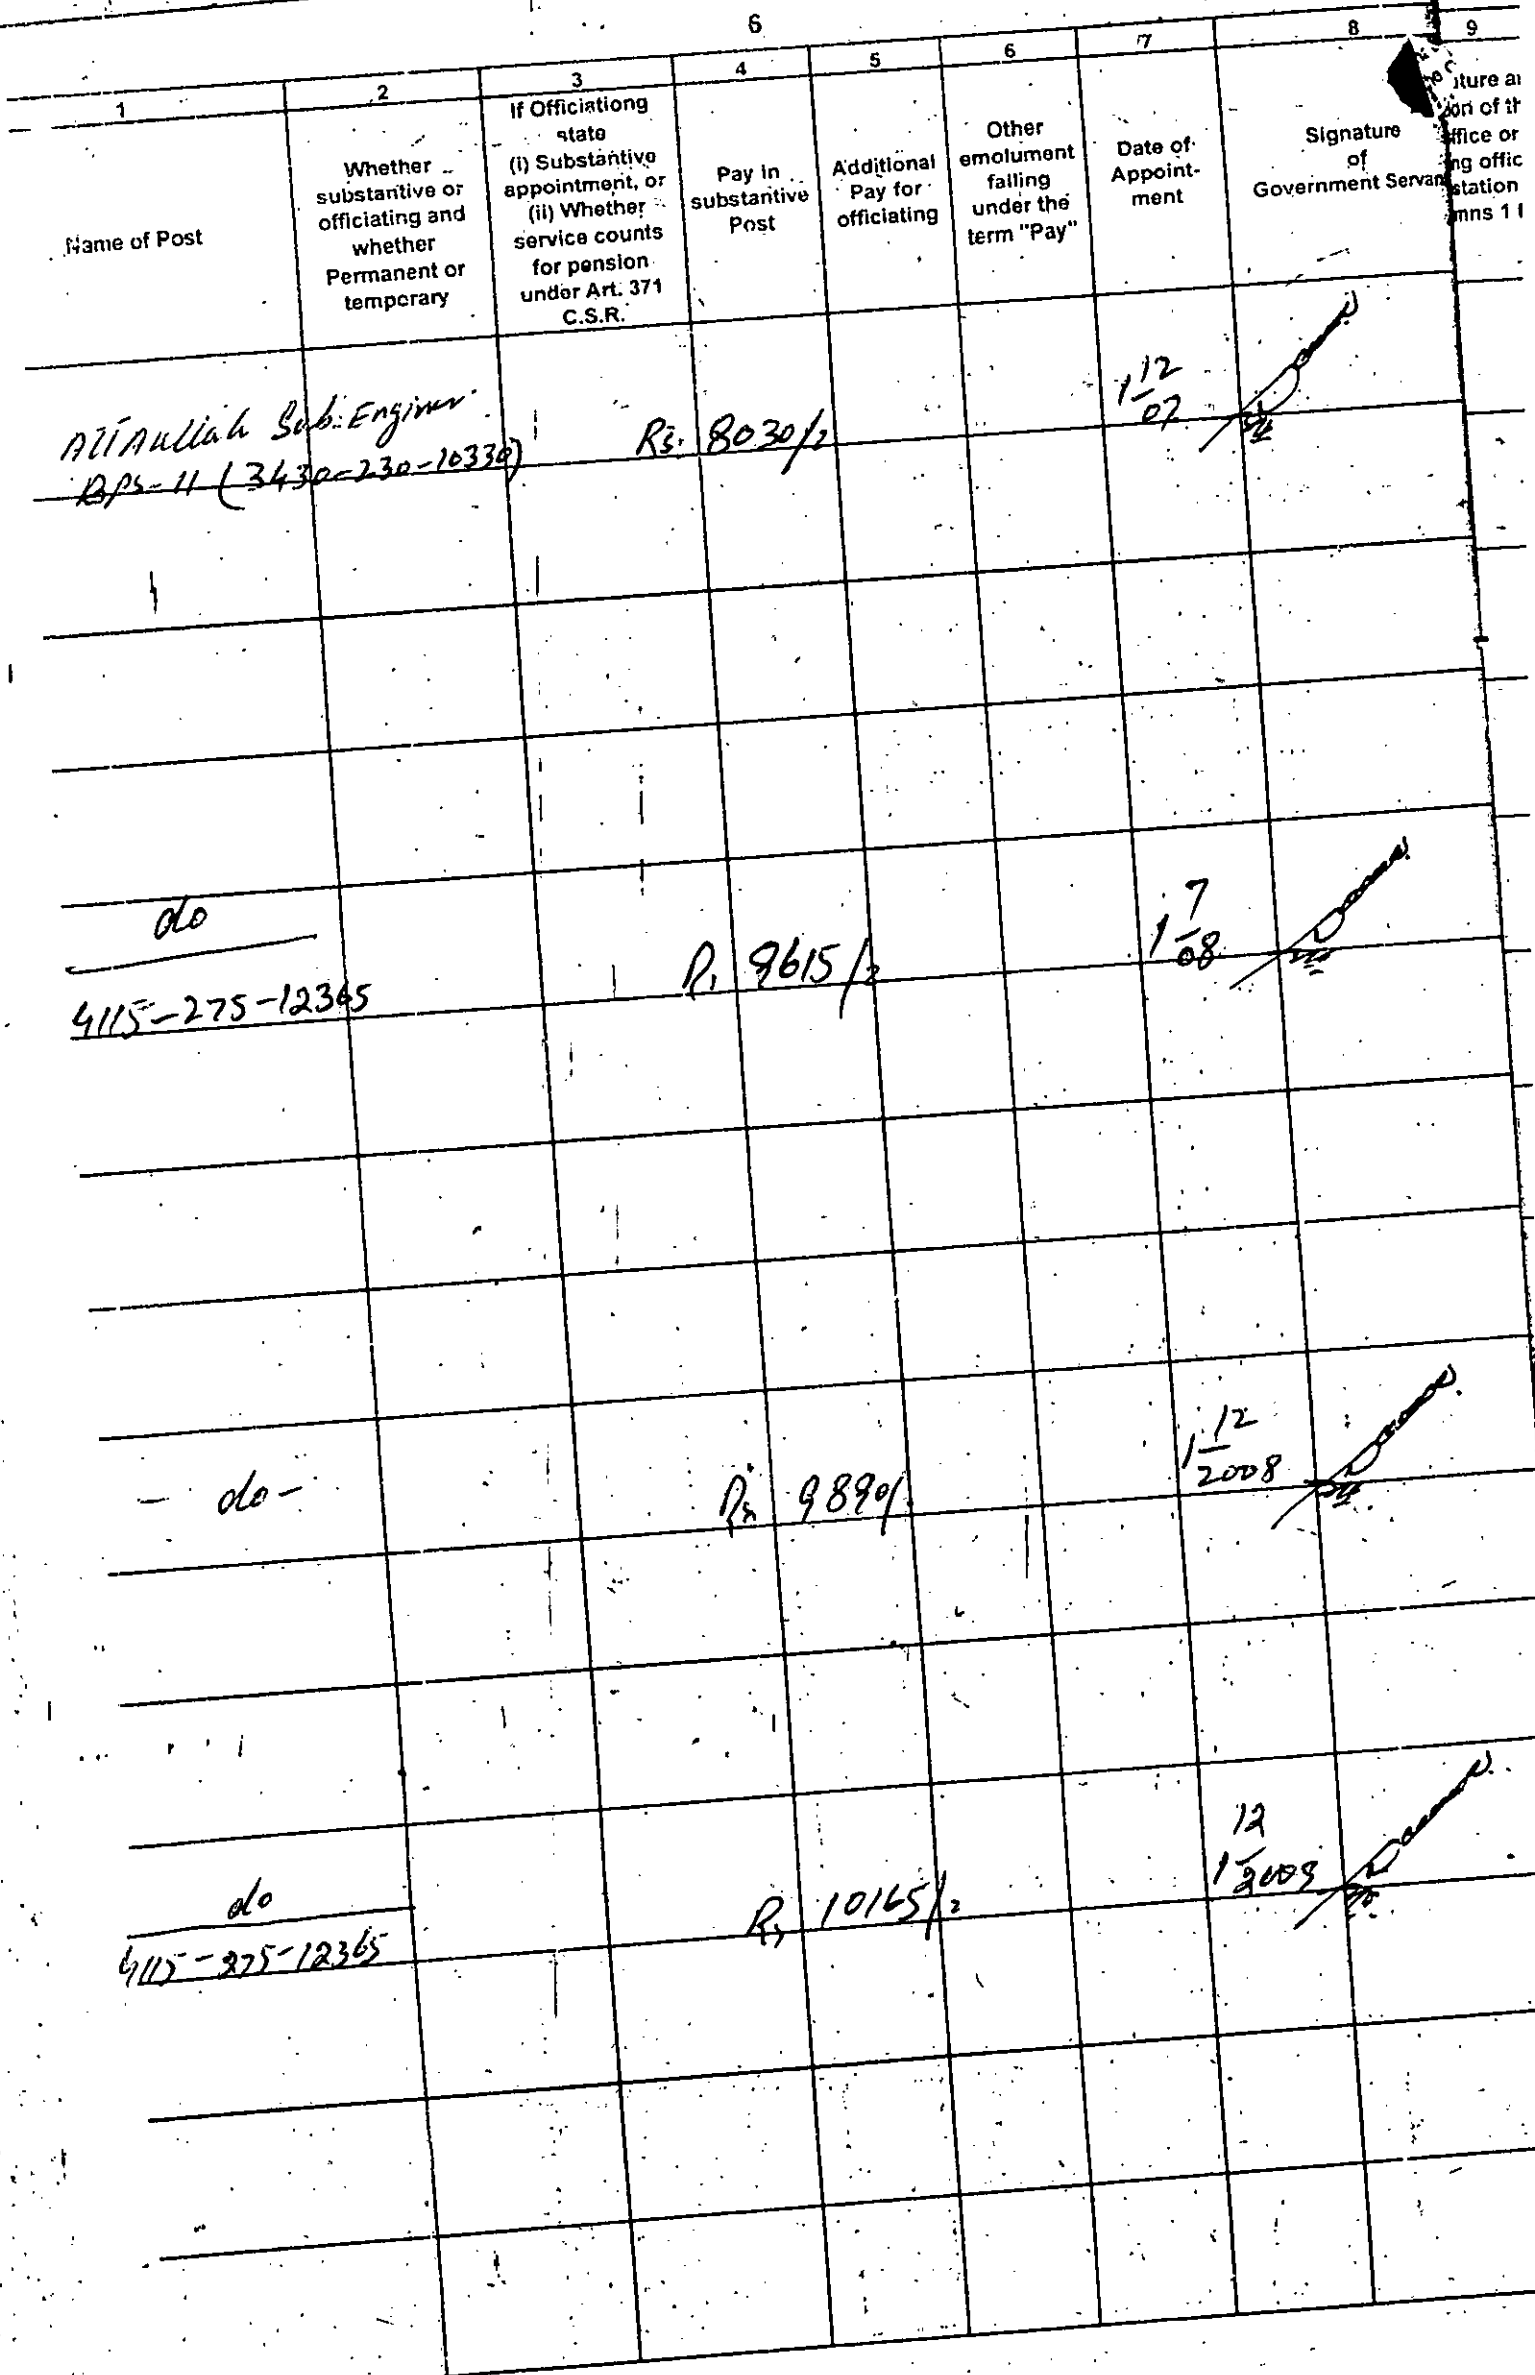 6
1
2
3
4
5
6
7
8
9
Name of Post
Whether
substantive or
officiating and
whether
Permanent or
temporary
If Officiationg
state
(i) Substantive
appointment, or
(ii) Whether
service counts
for pension
under Art. 371
C.S.R.
Pay in
substantive
Post
Additional
Pay for
officiating
Other
emolument
falling
under the
term "Pay"
Date of
Appoint-
ment
Signature
of
Government Servant
ture a
on of th
ffice or
ng offic
station
mns 1 t
AttAullah Sub: Engineer
BPS-11 (3430-230-10330)
Rs. 8030/2
1 12
07
do
4115-275-12365
Rs 9615/2
1 7
08
- do -
Rs. 9890/
1 12
2008
do
4115-275-12365
Rs 10165/2
12
1 2009